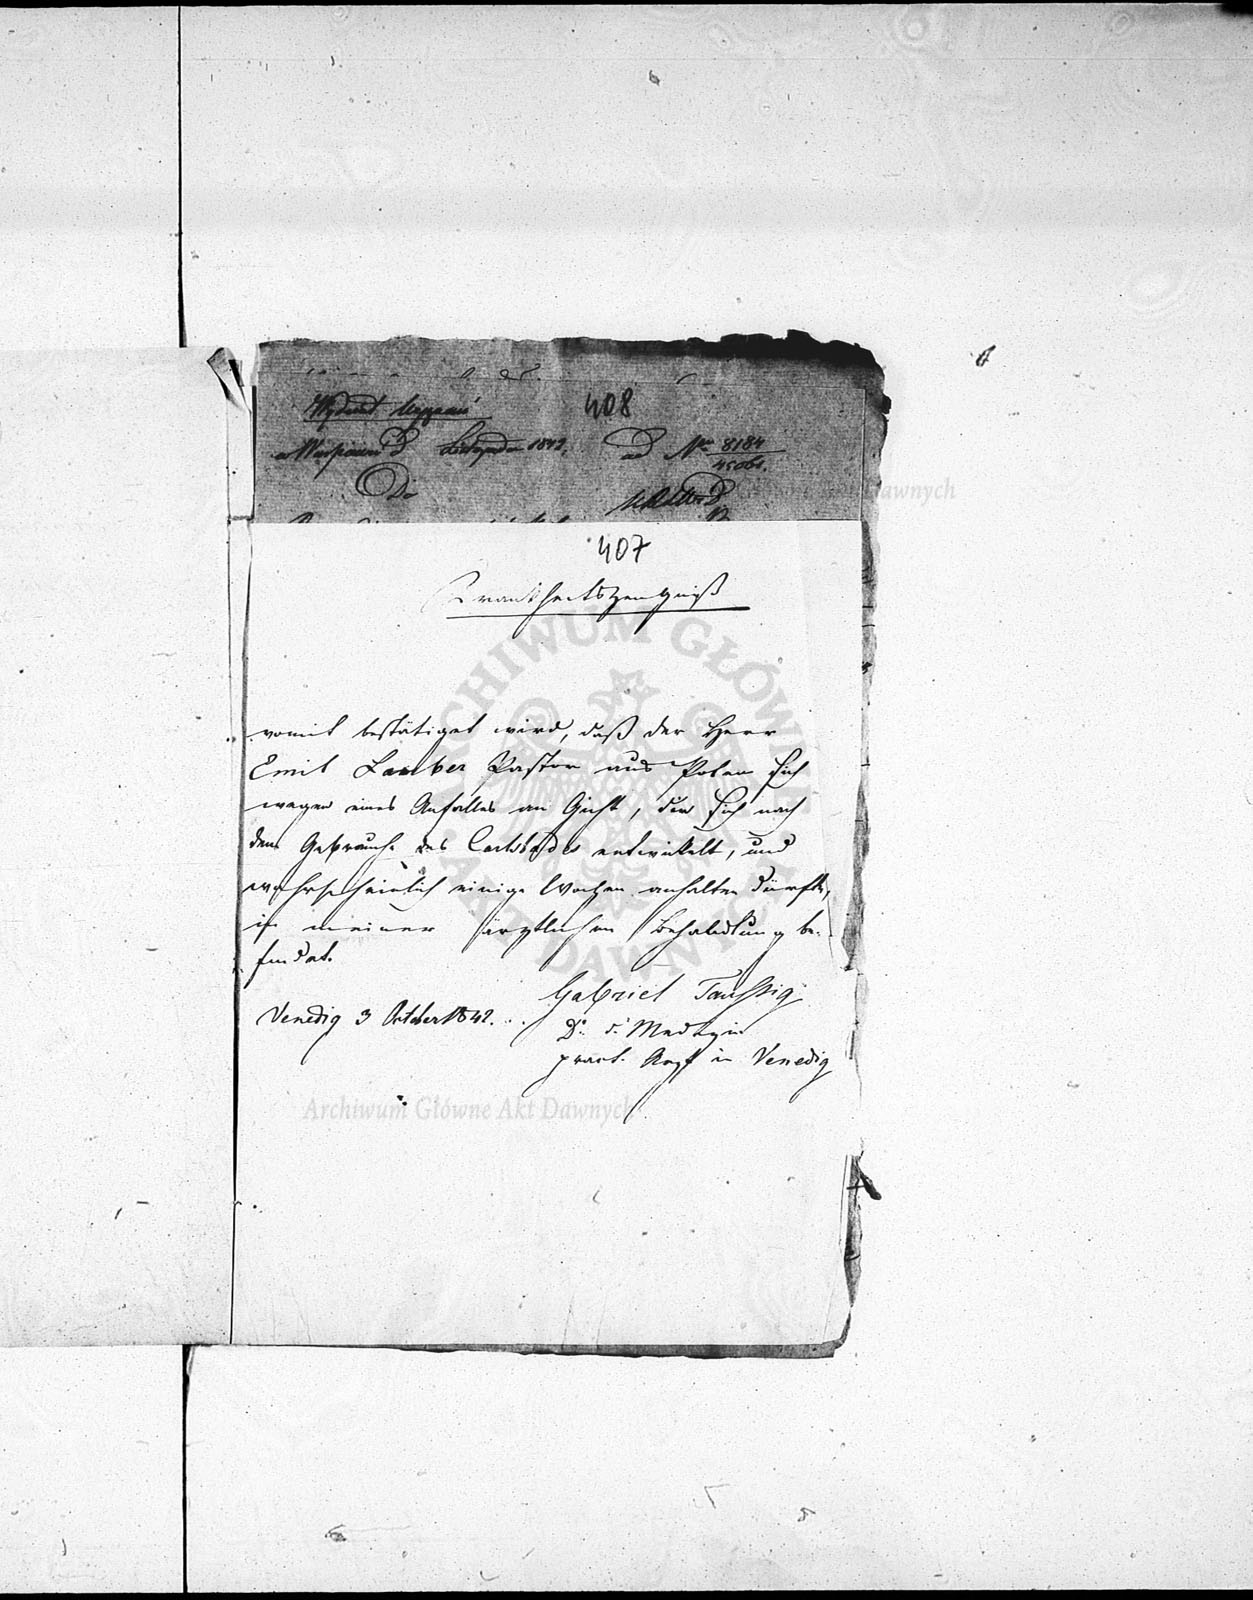 408
Wydział
w Warszawie d Listopada 1842.
ad Nrum 8184/45061.
Do
407
Krankheitszeugniß
womit bestätiget wird, daß der Herr
Emil Lauber Pastor aus Polen sich
wegen eines Anfalles an Gicht, der sich nach
dem Gebrauche des Carlsbades entwickelt, und
wahrscheinlich einige Wochen anhalten dürfte,
in meiner ärztlichen Behandlung be-
findet.
Venedig 3 October 1842.
Gabriel Taussig
Dr. d. Medizin
pract. Arzt in Venedig
ARCHIWUM GŁÓWNE AKT DAWNYCH
Archiwum Główne Akt Dawnych